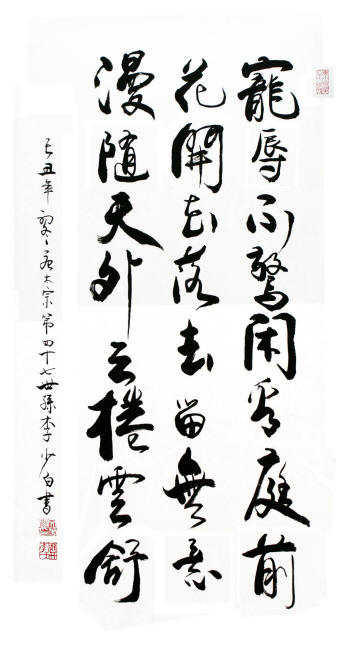 寵辱不驚閑看庭前
花開花落去留無意
漫隨天外云捲雲舒
己丑年初冬唐太宗第四十七世孫李少白書